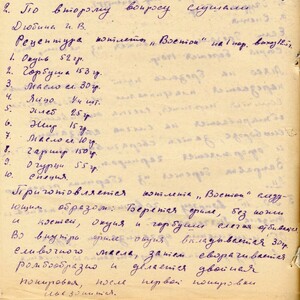 2. По второму вопросу слушали
Дюбина И.В.
Рецептура котлета „Восток" на 1 пор.
1. Окунь 52 гр.
2. Горбуша 153 гр.
3. Масло сл 30 гр.
4. Яйцо шт.
5. Хлеб 25 гр.
6. Жир 15 гр.
7. Масло сл 10 гр.
8. Гарнир 150 гр.
9. Огурцы 55 гр.
10. Специя.
Приготовляется котлета „Восток" следу-
ющим образом: Берется филе, без кожи
и костей, окуня и горбуши слегка отбивают
Во внутрь филе окуня вкладывается 30 гр.
сливочного масла, затем сворачивается
ромбообразно и делается двойная
панировка, после первой панировки